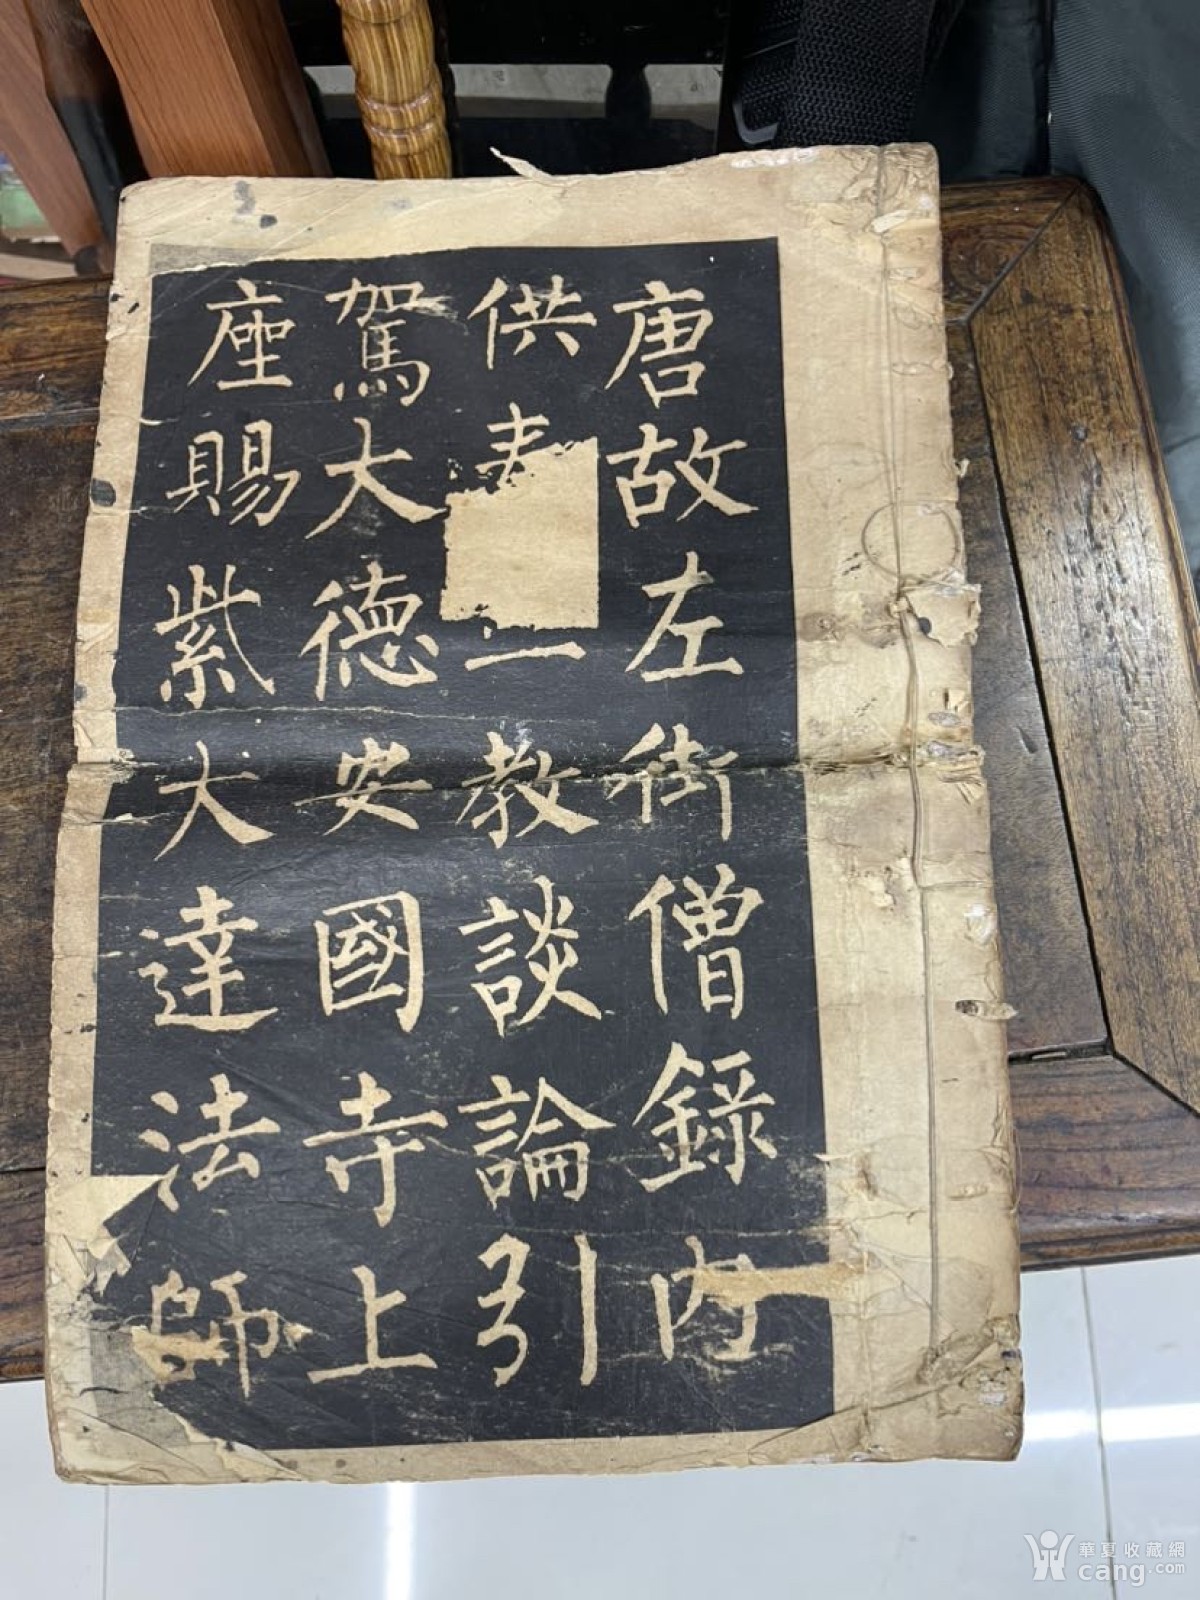 唐故左街僧錄內
供表一教談論引
駕大德安國寺上
座賜紫大達法師
華夏收藏網
cang.com